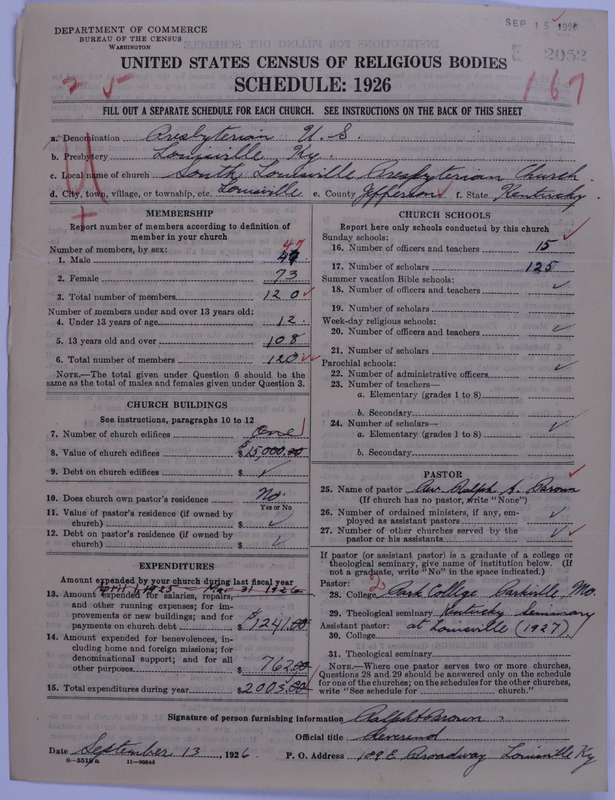 DEPARTMENT OF COMMERCE
BUREAU OF THE CENSUS
WASHINGTON
SEP 15 1926
2052
UNITED STATES CENSUS OF RELIGIOUS BODIES
SCHEDULE: 1926
25
167
FILL OUT A SEPARATE SCHEDULE FOR EACH CHURCH. SEE INSTRUCTIONS ON THE BACK OF THIS SHEET
a. Denomination Presbyterian U. S.
b. Presbytery Louisville, Ky.
c. Local name of church South Louisville Presbyterian Church
d. City, town, village, or township, etc. Louisville e. County Jefferson f. State Kentucky.
MEMBERSHIP
Report number of members according to definition of member in your church
Number of members, by sex:
47
1. Male
2. Female 73
3. Total number of members 120
Number of members under and over 13 years old:
4. Under 13 years of age 12
5. 13 years old and over 108
6. Total number of members 120
NOTE.—The total given under Question 6 should be the
same as the total of males and females given under Question 3.
CHURCH BUILDINGS
See instructions, paragraphs 10 to 12
7. Number of church edifices One
8. Value of church edifices $15,000.00
9. Debt on church edifices $
10. Does church own pastor's residence No.
Yes or No
11. Value of pastor's residence (if owned by
church) $
12. Debt on pastor's residence (if owned by
church) $
EXPENDITURES
Amount expended by your church during last fiscal year
April 1, 1925 – Mar 31 1926
13. Amount expended for salaries, repairs,
and other running expenses; for im-
provements or new buildings; and for
payments on church debt $1241.00
14. Amount expended for benevolences, in-
cluding home and foreign missions; for
denominational support; and for all
other purposes 762.00
15. Total expenditures during year $2003.00
CHURCH SCHOOLS
Report here only schools conducted by this church
Sunday schools:
16. Number of officers and teachers 15
17. Number of scholars 125
Summer vacation Bible schools:
18. Number of officers and teachers
19. Number of scholars
Week-day religious schools:
20. Number of officers and teachers
21. Number of scholars
Parochial schools:
22. Number of administrative officers
23. Number of teachers—
a. Elementary (grades 1 to 8)
b. Secondary
24. Number of scholars—
a. Elementary (grades 1 to 8)
b. Secondary
PASTOR
25. Name of pastor Rev. Ralph A. Brown
(If church has no pastor, write "None")
26. Number of ordained ministers, if any, em-
ployed as assistant pastors
27. Number of other churches served by the
pastor or his assistants
If pastor (or assistant pastor) is a graduate of a college or
theological seminary, give name of institution below. (If
not a graduate, write "No" in the space indicated.)
Pastor:
28. College Park College Parkville, Mo.
29. Theological seminary Kentucky Seminary
Assistant pastor: at Louisville (1927)
30. College
31. Theological seminary
NOTE.—Where one pastor serves two or more churches,
Questions 28 and 29 should be answered only on the schedule
for one of the churches; on the schedules for the other churches,
write "See schedule for church."
Signature of person furnishing information Ralph A Brown
Official title Reverend
Date September 13, 1926 P. O. Address 109 E. Broadway Louisville Ky